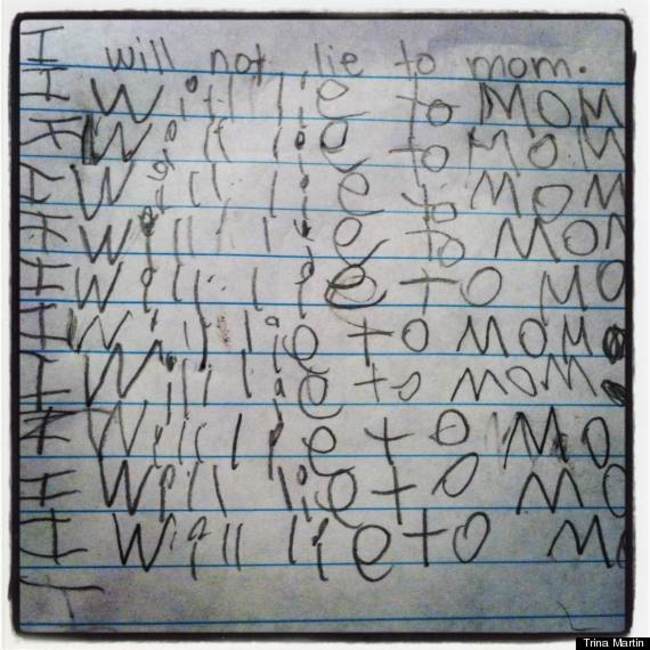 I will not lie to mom.
I Will lie to MOM
I Will lie to MOM
I Will lie to MOM
I Will lie to MOM
I Will lie to MO
I Will lie to MOM
I Will lie to MOM.
I Will lie to MO
I Will lie to MO
I Will lie to MO
I
Trina Martin